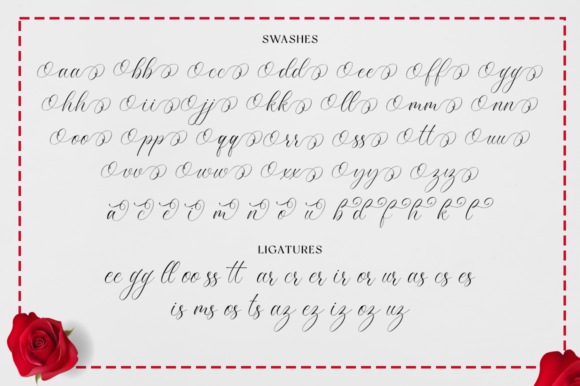 SWASHES
aa bb cc dd ee ff gg
hh ii jj kk ll mm nn
oo pp qq rr ss tt uu
vv ww xx yy zz
a e i m n o u b d f h k l
LIGATURES
ee gg ll oo ss tt ar cr er ir or ur as cs es
is ms os ts az ez iz oz uz